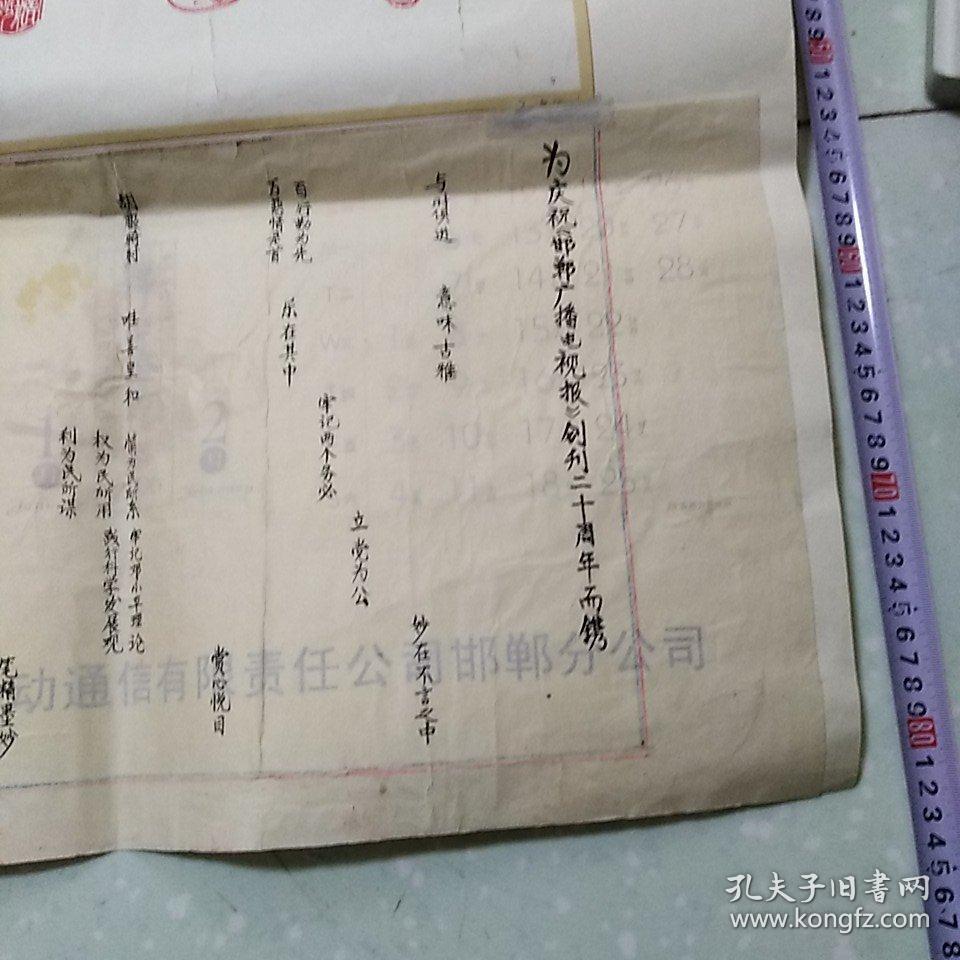 为庆祝《邯郸广播电视报》创刊二十周年而镌
与时俱进 意味古雅 妙在不言之中
立党为公
牢记两个务必
百行勤为先 乐在其中
百善情是首
赏心悦目
情为民所系 牢记邓小平理论
唯善呈和
权为民所用 践行科学发展观
利为民所谋
笔精墨妙
动通信有限责任公司邯郸分公司
孔夫子旧書网
www.kongfz.com